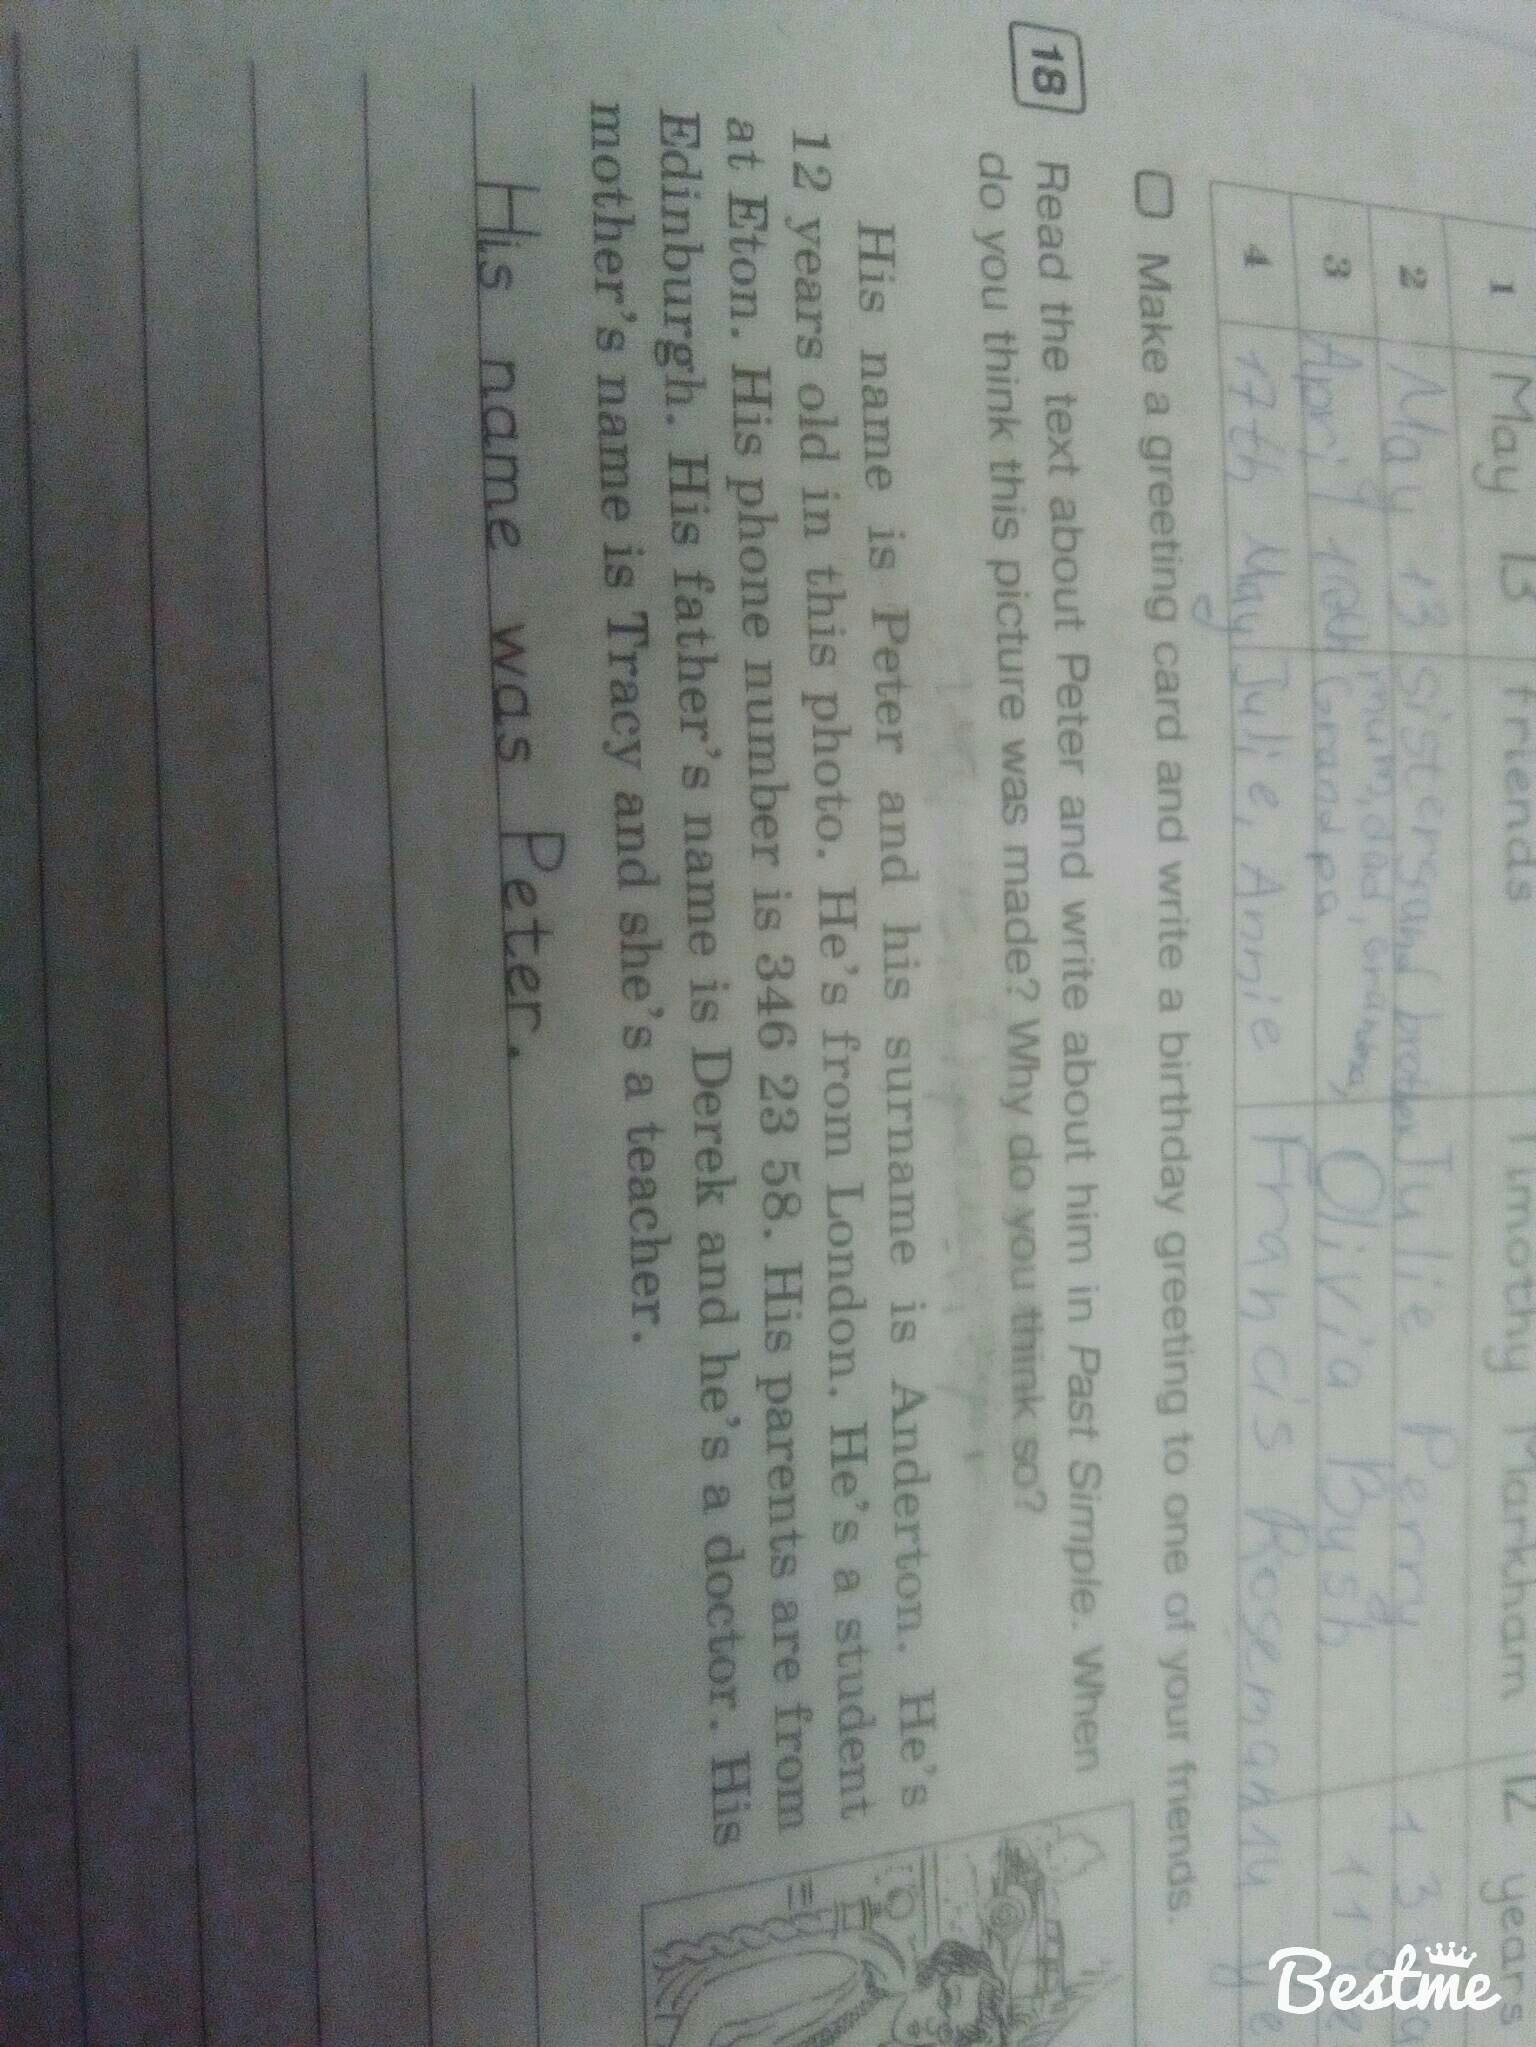 1 May 13 friends Timothy Markham 12 years
2 May 13 sister and brother Julie Perry 13
3 April mum, dad, Grandpa Olivia Bush 11
4 17th May Julie, Annie Francis Rosemary
Make a greeting card and write a birthday greeting to one of your friends.
18 Read the text about Peter and write about him in Past Simple. When
do you think this picture was made? Why do you think so?
His name is Peter and his surname is Anderton. He's
12 years old in this photo. He's from London. He's a student
at Eton. His phone number is 346 23 58. His parents are from
Edinburgh. His father's name is Derek and he's a doctor. His
mother's name is Tracy and she's a teacher.
His name was Peter.
Bestme